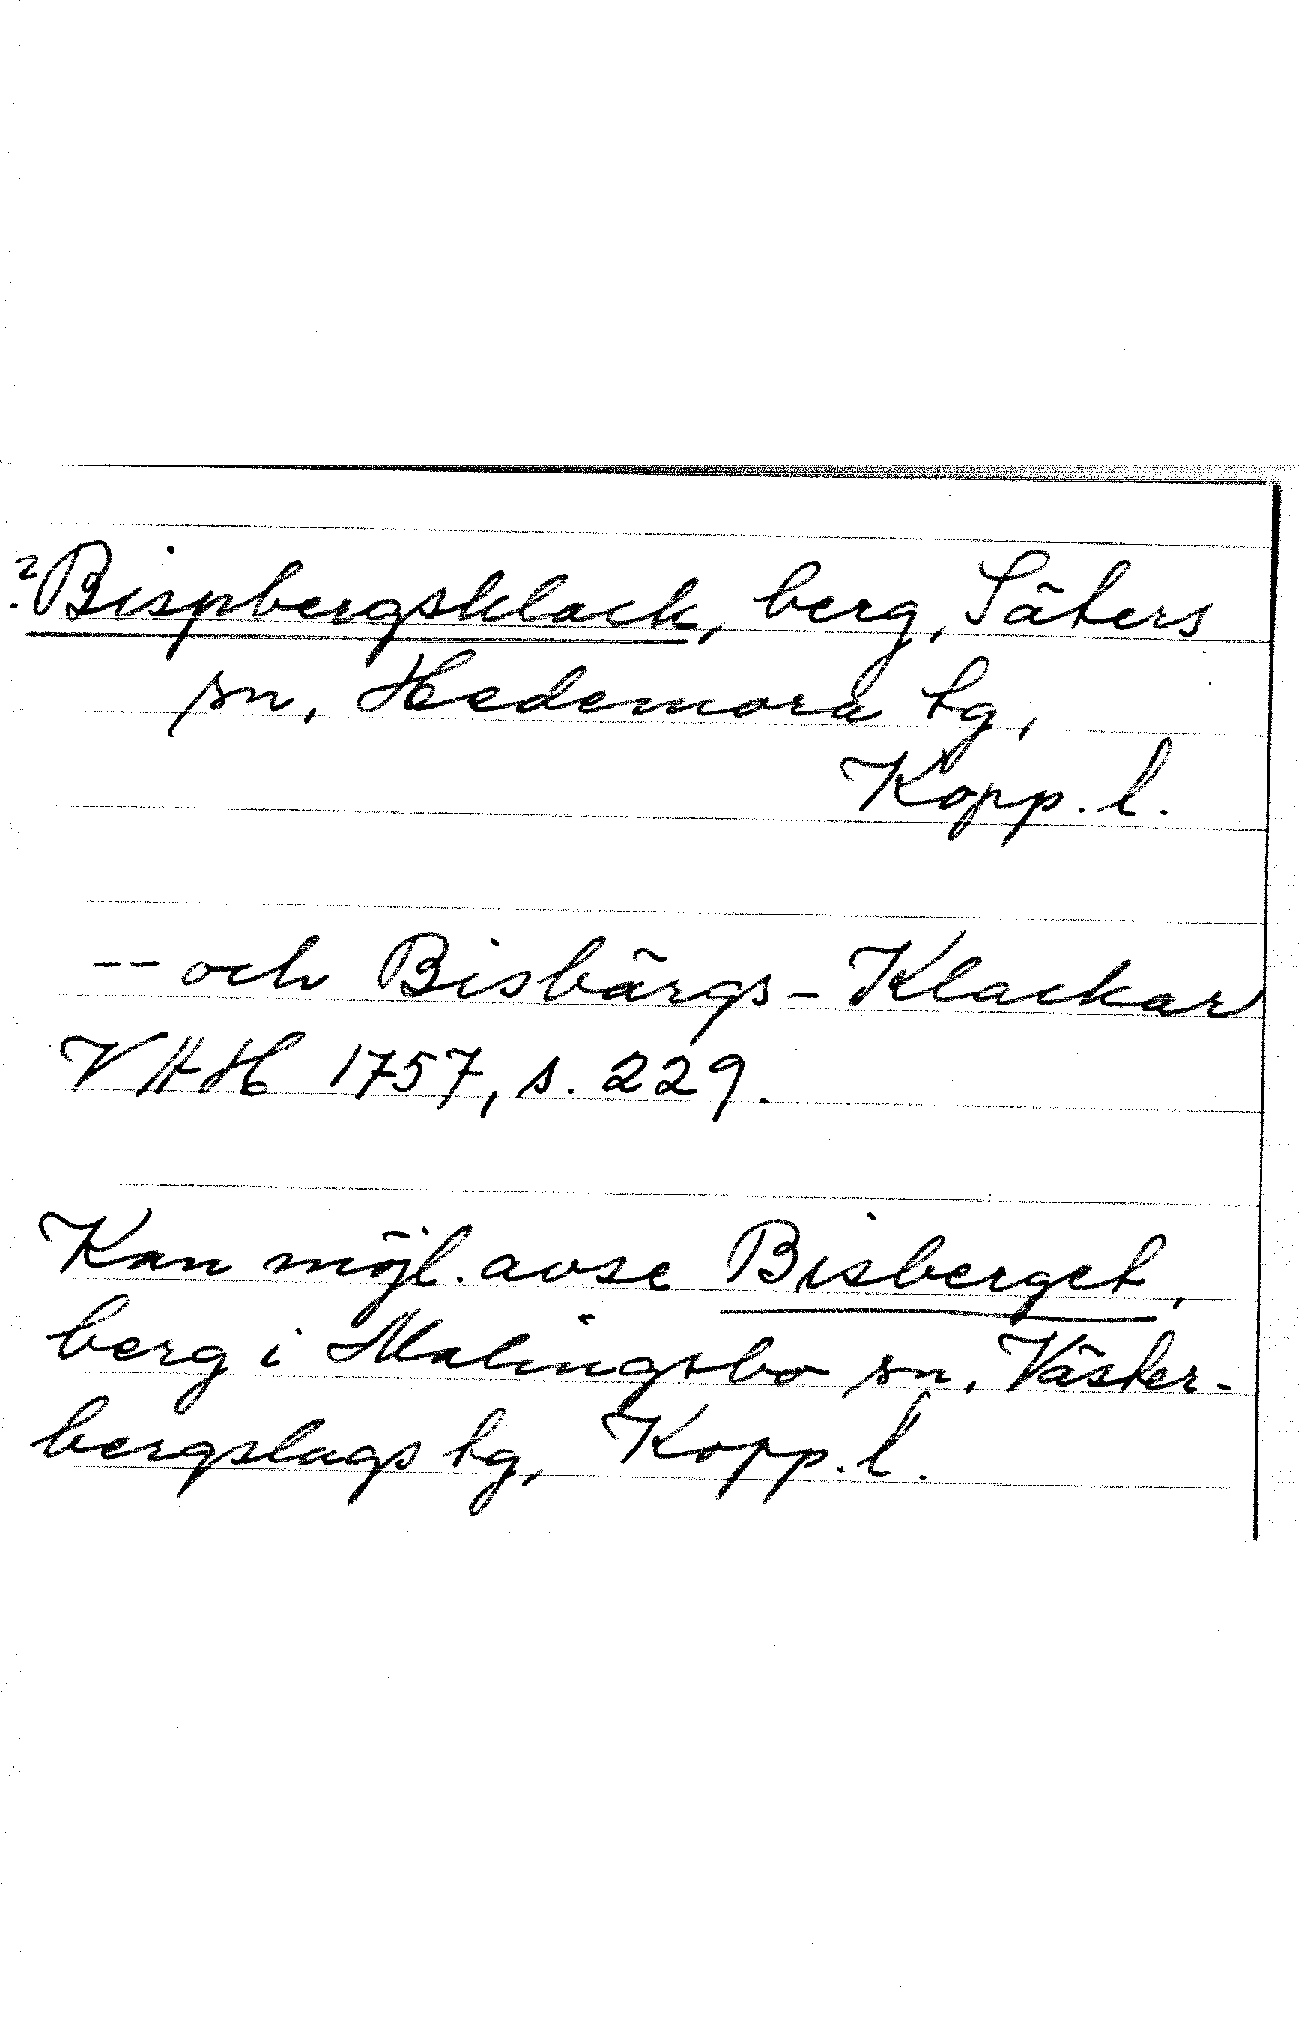 ? Bispbergsklack, berg, Säters
sn, Hedemora tg,
Kopp. l.
-- och Bisbärgs-Klackar
VHH 1757, s. 229.
Kan möjl. avse Bisberget,
berg i Malingsbo sn, Väster-
bergslags tg, Kopp. l.